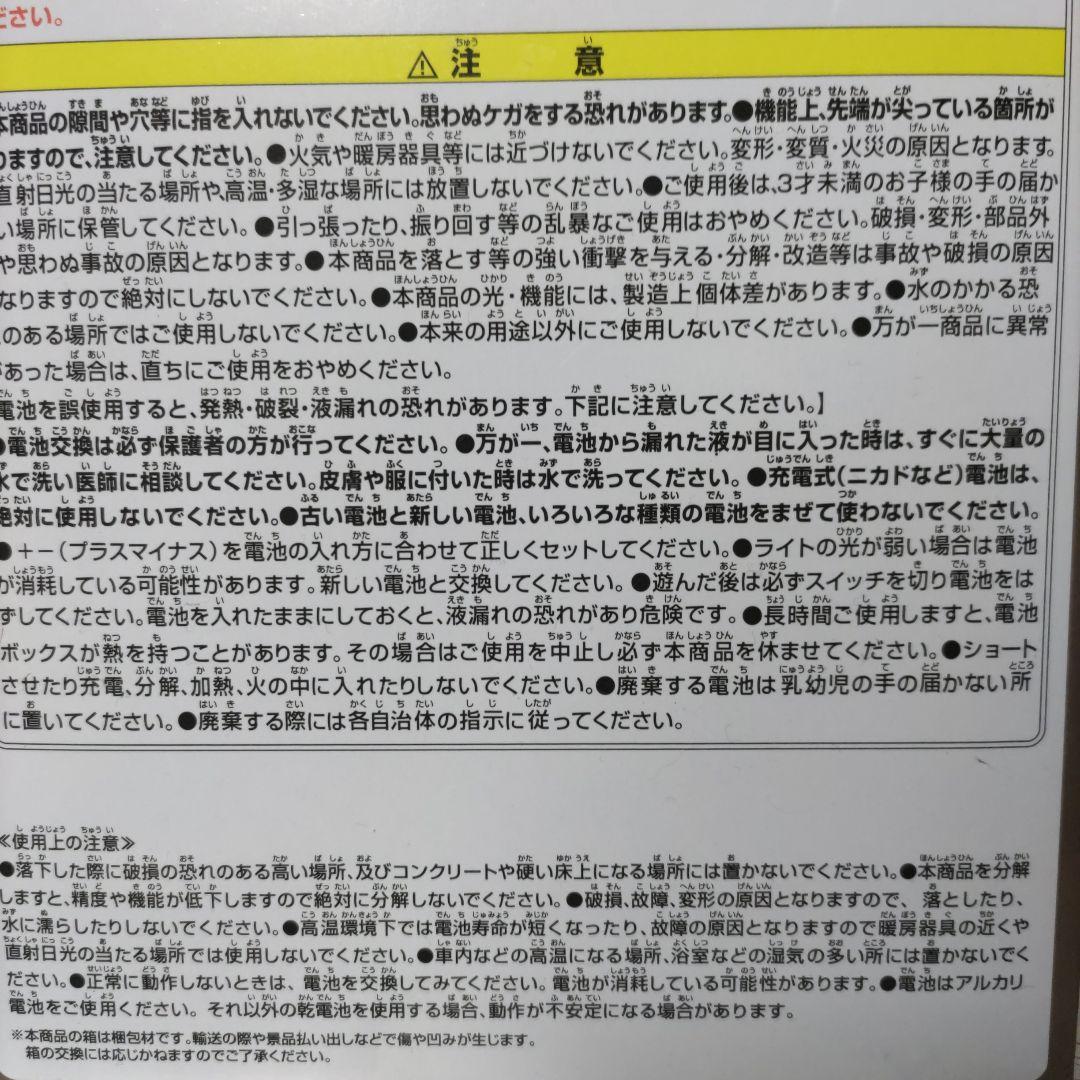 ださい。
⚠注意
本商品の隙間や穴等に指を入れないでください。思わぬケガをする恐れがあります。●機能上、先端が尖っている箇所が
りますので、注意してください。●火気や暖房器具等には近づけないでください。変形・変質・火災の原因となります。
直射日光の当たる場所や、高温・多湿な場所には放置しないでください。●ご使用後は、3才未満のお子様の手の届か
い場所に保管してください。●引っ張ったり、振り回す等の乱暴なご使用はおやめください。破損・変形・部品外
や思わぬ事故の原因となります。●本商品を落とす等の強い衝撃を与える・分解・改造等は事故や破損の原因
なりますので絶対にしないでください。●本商品の光・機能には、製造上個体差があります。●水のかかる恐
のある場所ではご使用しないでください。●本来の用途以外にご使用しないでください。●万が一商品に異常
があった場合は、直ちにご使用をおやめください。
電池を誤使用すると、発熱・破裂・液漏れの恐れがあります。下記に注意してください。】
●電池交換は必ず保護者の方が行ってください。●万が一、電池から漏れた液が目に入った時は、すぐに大量の
水で洗い医師に相談してください。皮膚や服に付いた時は水で洗ってください。●充電式(ニカドなど)電池は、
絶対に使用しないでください。●古い電池と新しい電池、いろいろな種類の電池をまぜて使わないでください。
●＋－(プラスマイナス)を電池の入れ方に合わせて正しくセットしてください。●ライトの光が弱い場合は電池
が消耗している可能性があります。新しい電池と交換してください。●遊んだ後は必ずスイッチを切り電池をは
ずしてください。電池を入れたままにしておくと、液漏れの恐れがあり危険です。●長時間ご使用しますと、電池
ボックスが熱を持つことがあります。その場合はご使用を中止し必ず本商品を休ませてください。●ショート
させたり充電、分解、加熱、火の中に入れたりしないでください。●廃棄する電池は乳幼児の手の届かない所
に置いてください。●廃棄する際には各自治体の指示に従ってください。
≪使用上の注意≫
●落下した際に破損の恐れのある高い場所、及びコンクリートや硬い床上になる場所には置かないでください。●本商品を分解
しますと、精度や機能が低下しますので絶対に分解しないでください。●破損、故障、変形の原因となりますので、落としたり、
水に濡らしたりしないでください。●高温環境下では電池寿命が短くなったり、故障の原因となりますので暖房器具の近くや
直射日光の当たる場所では使用しないでください。●車内などの高温になる場所、浴室などの湿気の多い所には置かないでく
ださい。●正常に動作しないときは、電池を交換してみてください。電池が消耗している可能性があります。●電池はアルカリ
電池をご使用ください。それ以外の乾電池を使用する場合、動作が不安定になる場合があります。
※本商品の箱は梱包材です。輸送の際や景品払い出しなどで傷や凹みが生じます。
箱の交換には応じかねますのでご了承ください。